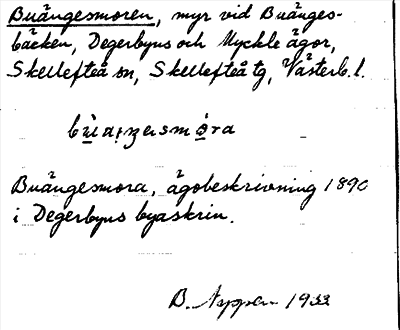 Buängesmoren, myr vid Buänges-
bäcken, Degerbyns och Myckle ägor,
Skellefteå sn, Skellefteå tg, Västerb. l.
Buängesmora, ägobeskrivning 1890
i Degerbyns byaskrin.
B. 1933